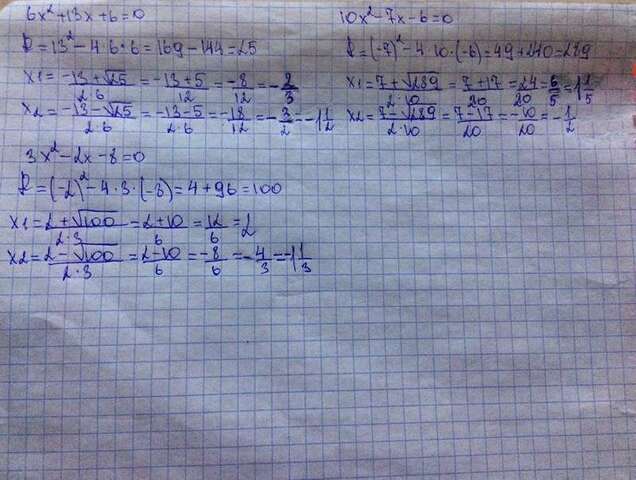 6x²+13x+6=0
D=13²-4·6·6=169-144=25
x1=-13+√25/2·6=-13+5/12=-8/12=-2/3
x2=-13-√25/2·6=-13-5/2·6=-18/12=-3/2=-1 1/2
3x²-2x-8=0
D=(-2)²-4·3·(-8)=4+96=100
x1=2+√100/2·3=2+10/6=12/6=2
x2=2-√100/2·3=2-10/6=-8/6=-4/3=-1 1/3
10x²-7x-6=0
D=(-7)²-4·10·(-6)=49+240=289
x1=7+√289/2·10=7+17/20=24/20=6/5=1 1/5
x2=7-√289/2·10=7-17/20=-10/20=-1/2